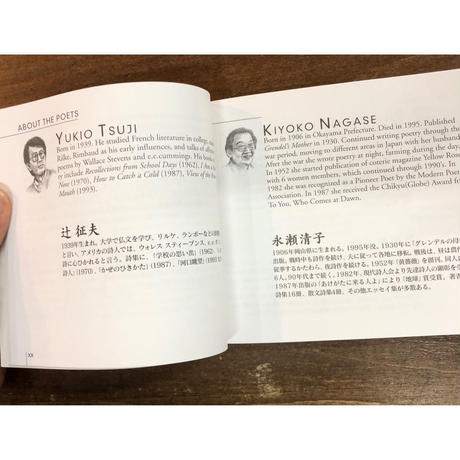 ABOUT THE POETS
YUKIO TSUJI
Born in 1939. He studied French literature in college,
Rilke, Rimbaud as his early influences, and talks of
poems by Wallace Stevens and e.e.cummings. His books
ry include Recollections from School Days (1962),
Now (1970), How to Catch a Cold (1987), View of the
Mouth (1993).
辻 征夫
1939年生まれ。大学で仏文を学び、リルケ、ランボーなどの
と言い、アメリカの詩人では、ウォレス スティーブンス、e.e.
詩に心ひかれると言う。詩集に、「学校の思い出」(1962)、
詩人」(1970)、「かぜのひきかた」(1987)、「河口眺望」(1993)
xx
KIYOKO NAGASE
Born in 1906 in Okayama Prefecture. Died in 1995. Published
Grendel's Mother in 1930. Continued writing poetry through the
war period, moving to different areas in Japan with her husband
After the war she wrote poetry at night, farming during the day.
In 1952 she started publication of coterie magazine Yellow Rose
with 6 women members, which continued through 1990's. In
1982 she was recognized as a Pioneer Poet by the Modern Poet
Association. In 1987 she received the Chikyu(Globe) Award for
To You, Who Comes at Dawn.
永瀬清子
1906年岡山県に生まれる。1995年没。1930年に「グレンデルの母
出版。戦時中も詩作を続け、夫に従って各地に移転。戦後は、昼は農
従事するかたわら、夜詩作を続ける。1952年「黄薔薇」を創刊。同人
6人。90年代まで続く。1982年、現代詩人会より先達詩人の顕彰を受
1987年出版の「あけがたに来る人よ」により「地球」賞受賞。著
詩集16冊、散文詩集4冊、その他エッセイ集が多数ある。